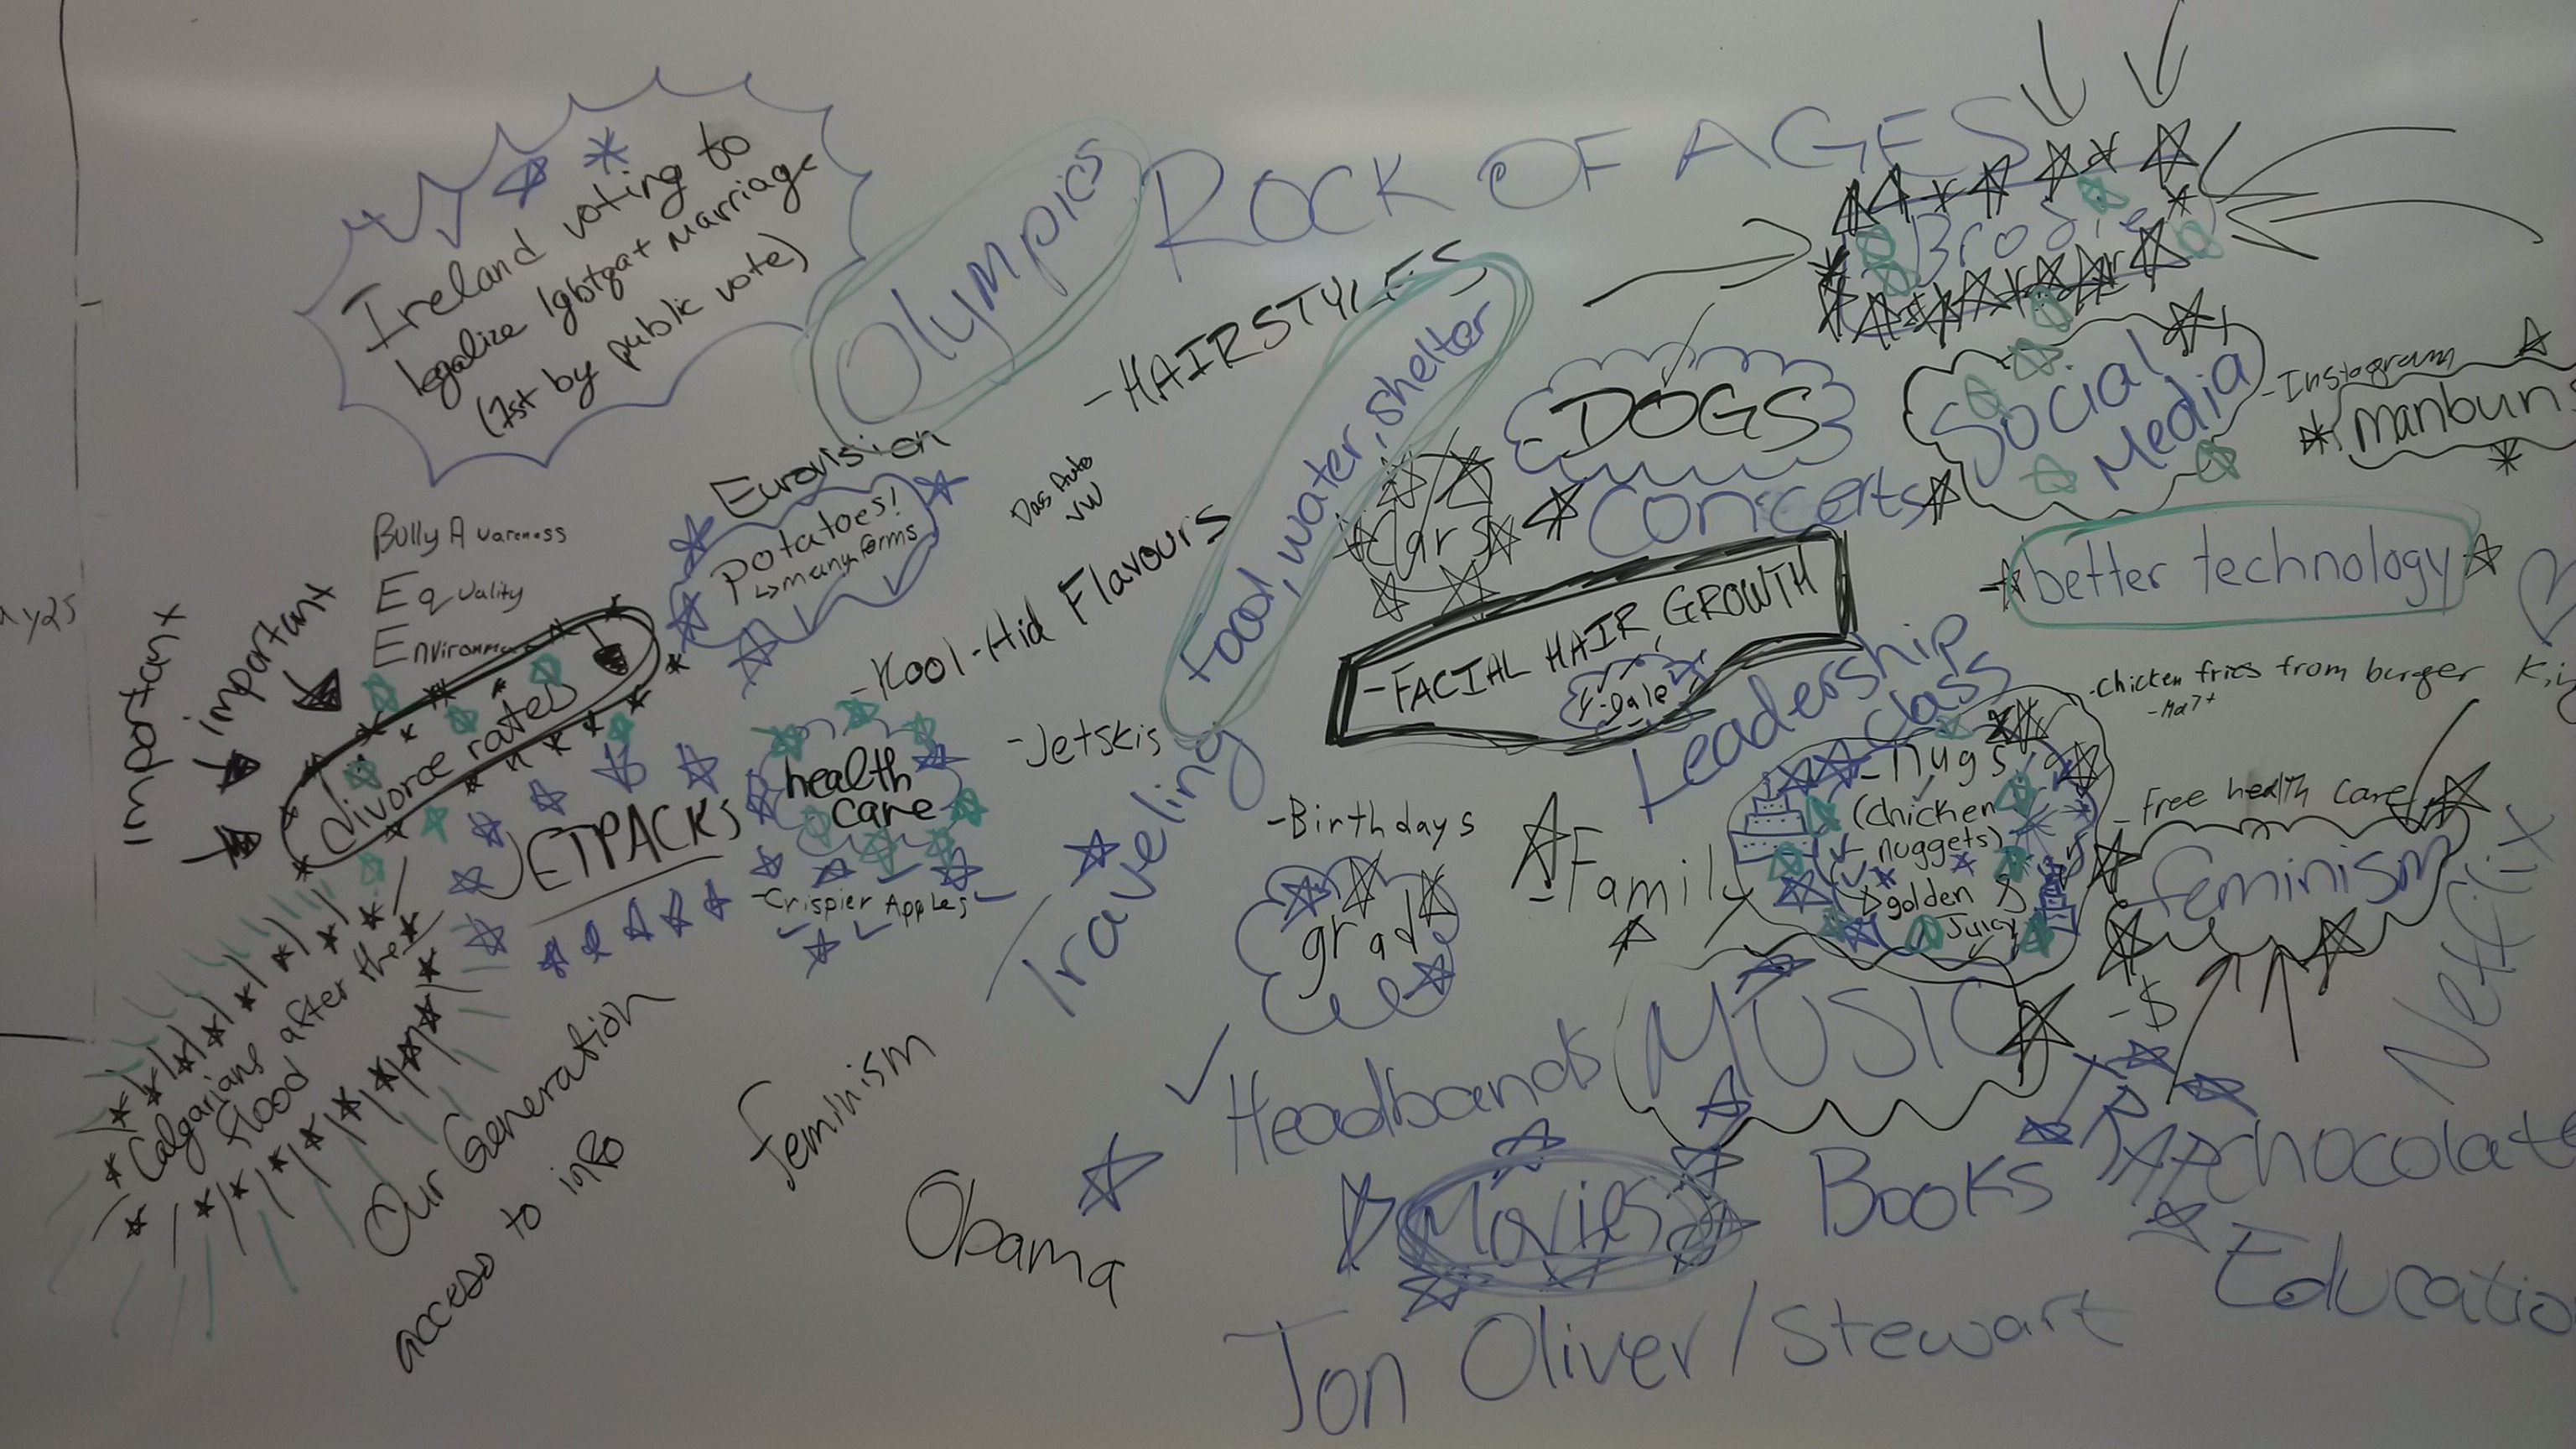 Ireland voting to
legalize lgbtqat Marriage
(1st by public vote)
Olympics
ROCK OF AGES
Brodie
-HAIRSTYLES
food, water, shelter
-DOGS
Social
Media
-Instagram
manbun
Eurovision
potatoes!
↳many forms
Das Auto
VW
Cars
Concerts
better technology
Bully Awareness
Equality
important
important
divorce rates
-Kool-Aid Flavours
-FACIAL HAIR GROWTH
Y-Dale
Leadership
Class
-Jetskis
Traveling
health
care
JETPACKS
-Crispier Apples
-Birthdays
grad
-Family
-nugs
(chicken
nuggets)
golden &
Juicy
-Chicken fries from burger
-Free health care
feminism
Netflix
-$
Calgarians after the
flood
Our Generation
access to info
feminism
Obama
Headbands
MUSIC
Movies
BOOKS
chocolate
Education
Jon Oliver/Stewart